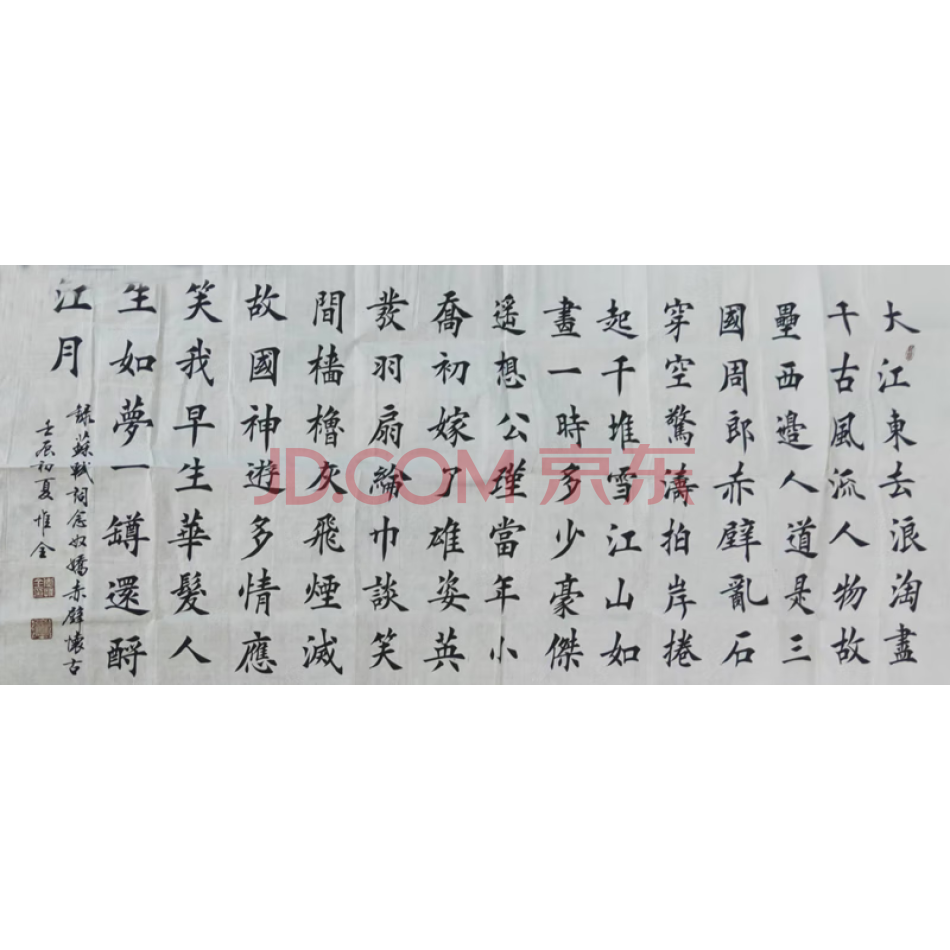 大江東去浪淘盡
千古風流人物故
壘西邊人道是三
國周郎赤壁亂石
穿空驚濤拍岸捲
起千堆雪江山如
畫一時多少豪傑
遥想公瑾當年小
喬初嫁了雄姿英
發羽扇綸巾談笑
間檣櫓灰飛煙滅
故國神遊多情應
笑我早生華髮人
生如夢一罇還酹
江月
錄蘇軾詞念奴嬌赤壁懷古
壬辰初夏惟全
JD.COM 京东